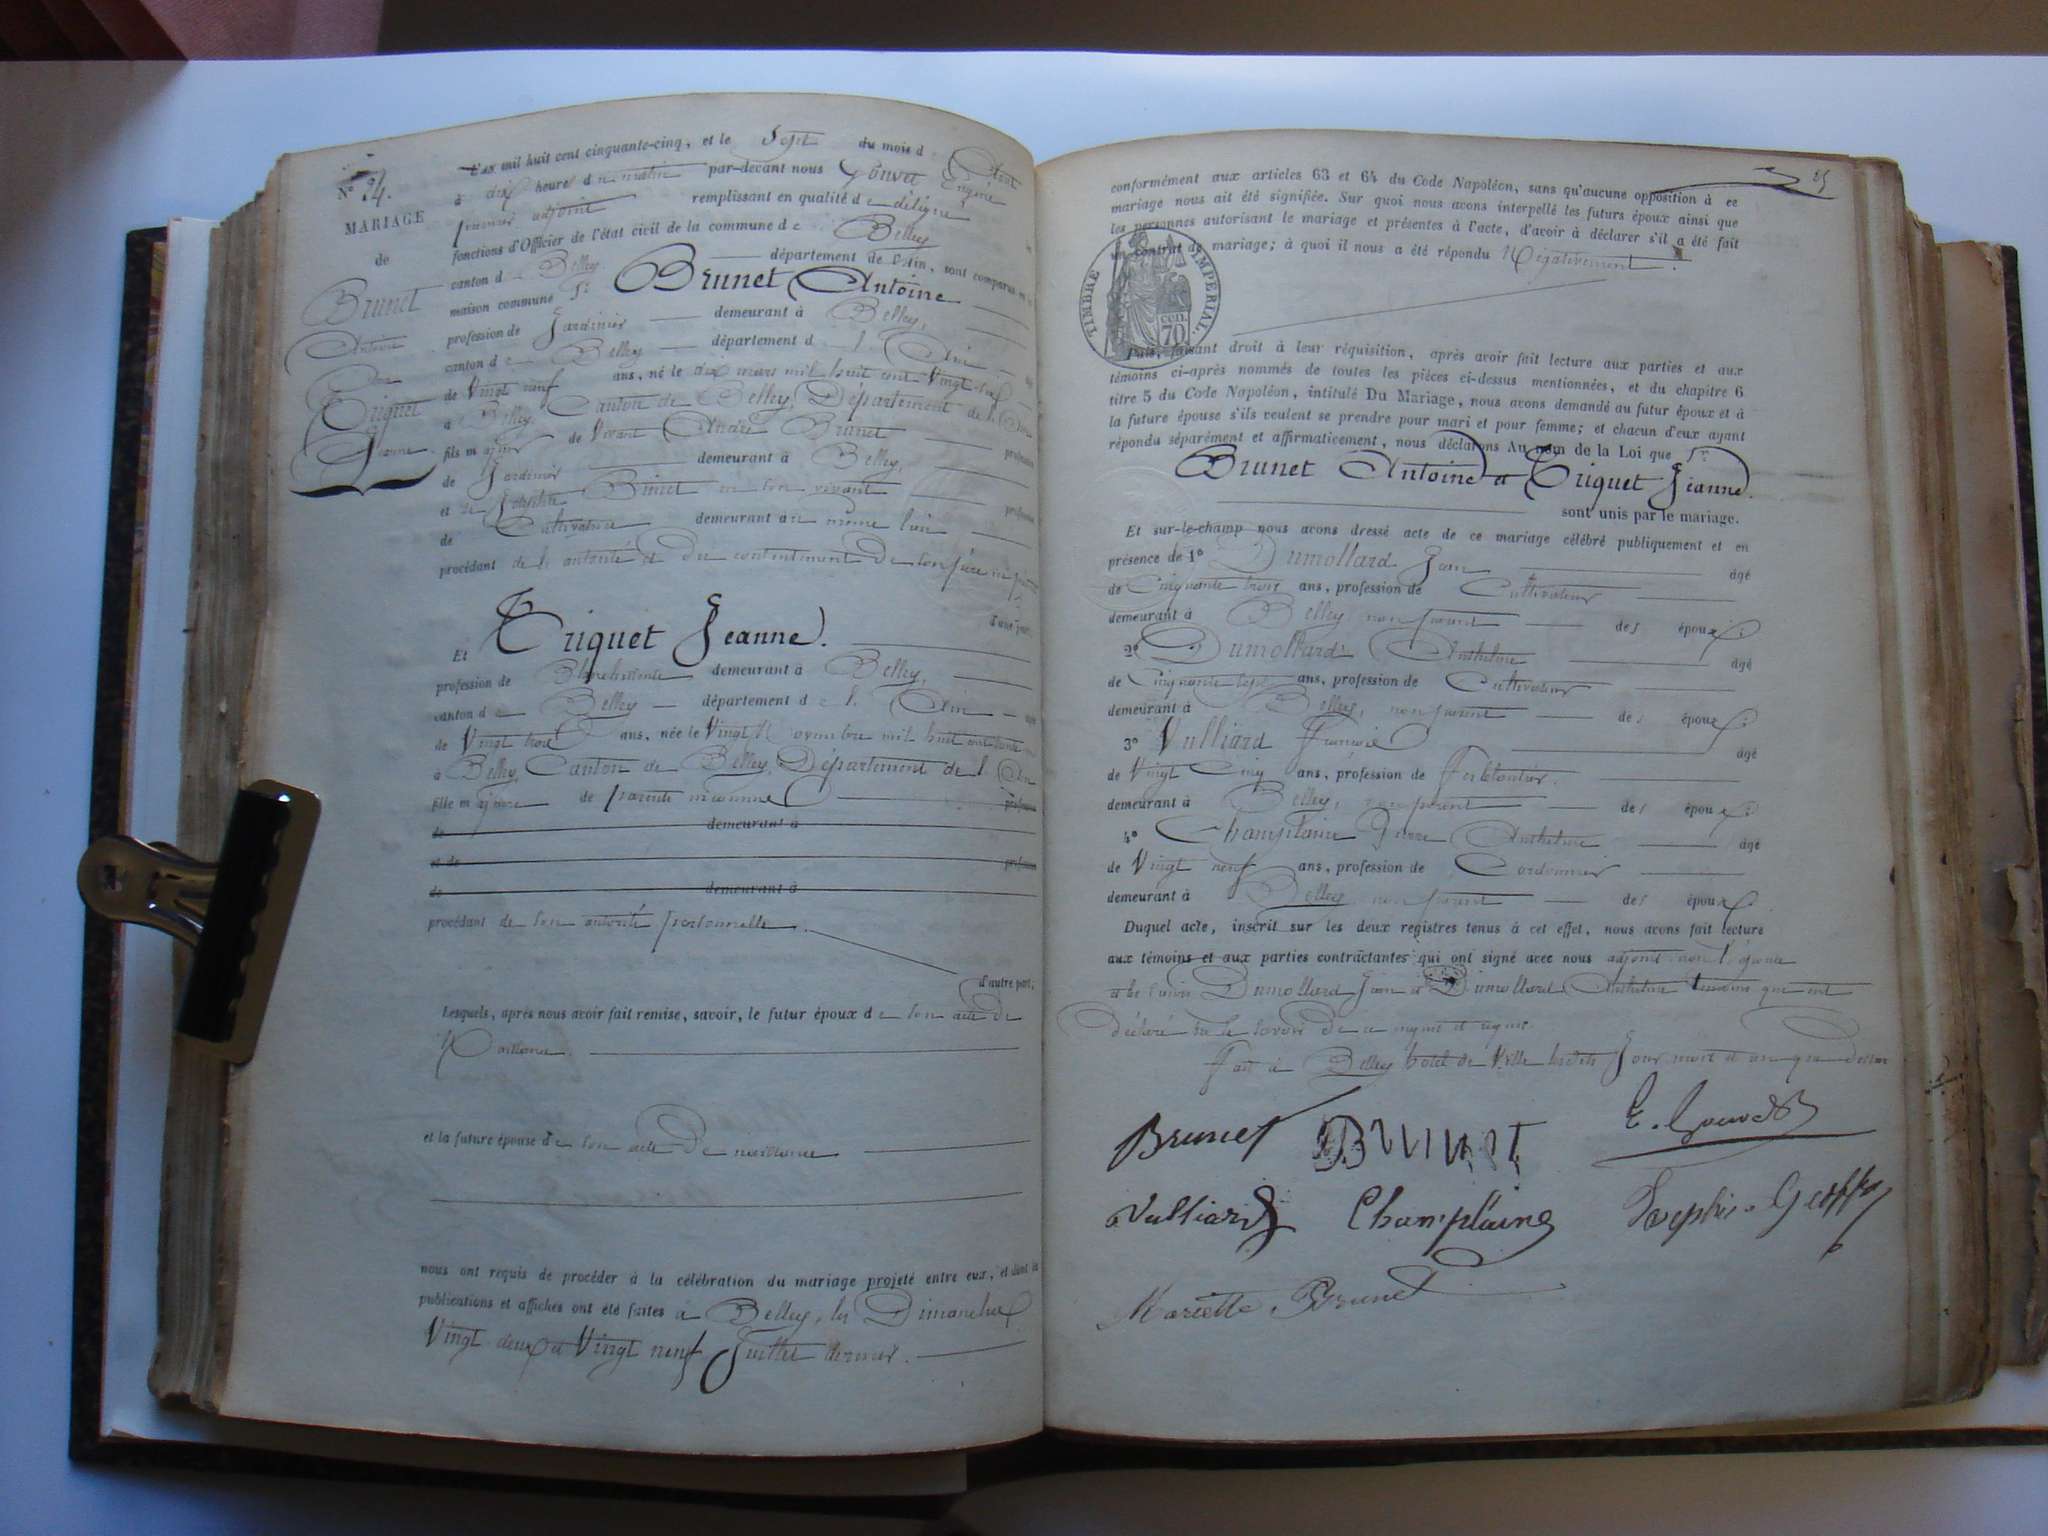 N° 24.
MARIAGE
de
Brunet
Antoine
Triquet
Jeanne
L'an mil huit cent cinquante-cinq, et le Sept du mois d' Aout
à dix heures du matin par-devant nous Gouvet Eugène
premier adjoint remplissant en qualité de délégué
fonctions d'Officier de l'état civil de la commune de Belley
canton de Belley département de l'Ain, sont comparus en
maison commune Sr Brunet Antoine
profession de Jardinier demeurant à Belley,
canton de Belley département de l'Ain
de Vingt neuf ans, né le dix mars mil huit cent Vingt six
à Belley, Canton de Belley, Département de l'Ain
fils majeur de Vivant André Brunet profession
de Jardinier demeurant à Belley,
et de Binet en son vivant profession
de Cultivatrice demeurant au même lieu
procédant de l'autorité et du consentement de son père
d'une part,
Et Triquet Jeanne.
profession de Blanchisseuse demeurant à Belley,
canton de Belley département de l'Ain
de Vingt trois ans, née le Vingt Novembre mil huit cent trente
à Belley, Canton de Belley, Département de l'Ain
fille majeure de parents inconnus profession
de demeurant à
et de profession
de demeurant à
procédant de son autorité personnelle.
d'autre part;
Lesquels, après nous avoir fait remise, savoir, le futur époux de son acte de
Naissance.
et la future épouse de son acte de naissance
nous ont requis de procéder à la célébration du mariage projeté entre eux, et dont les
publications et affiches ont été faites à Belley, les Dimanches
Vingt deux et Vingt neuf Juillet dernier.
25
conformément aux articles 63 et 64 du Code Napoléon, sans qu'aucune opposition à ce
mariage nous ait été signifiée. Sur quoi nous avons interpellé les futurs époux ainsi que
les personnes autorisant le mariage et présentes à l'acte, d'avoir à déclarer s'il a été fait
un contrat de mariage; à quoi il nous a été répondu Négativement.
TIMBRE IMPERIAL.
70 cen.
Puis, faisant droit à leur réquisition, après avoir fait lecture aux parties et aux
témoins ci-après nommés de toutes les pièces ci-dessus mentionnées, et du chapitre 6
titre 5 du Code Napoléon, intitulé Du Mariage, nous avons demandé au futur époux et à
la future épouse s'ils veulent se prendre pour mari et pour femme; et chacun d'eux ayant
répondu séparément et affirmativement, nous déclarons Au nom de la Loi que Sr
Brunet Antoine et Triquet Jeanne.
sont unis par le mariage.
Et sur-le-champ nous avons dressé acte de ce mariage célébré publiquement et en
présence de 1° Dumollard Jean âgé
de Cinquante trois ans, profession de Cultivateur
demeurant à Belley non parent des époux;
2° Dumollard Anthelme âgé
de Cinquante sept ans, profession de Cultivateur
demeurant à Belley, non parent des époux;
3° Vulliard François âgé
de Vingt Cinq ans, profession de Ferblantier.
demeurant à Belley, non parent des époux;
4° Champlaine Pierre Anthelme âgé
de Vingt neuf ans, profession de Cordonnier
demeurant à Belley non parent des époux.
Duquel acte, inscrit sur les deux registres tenus à cet effet, nous avons fait lecture
aux témoins et aux parties contractantes qui ont signé avec nous adjoint non l'épouse
Dumollard Jean et Dumollard Anthelme témoins qui ont
déclaré ne le savoir de ce enquis et requis.
Fait à Belley hôtel de Ville lesdits Jour mois et an que dessus
Brunet BRUNET E. Gouvet
Vulliard Champlaine Sophie Geoffray
Mariette Brunet